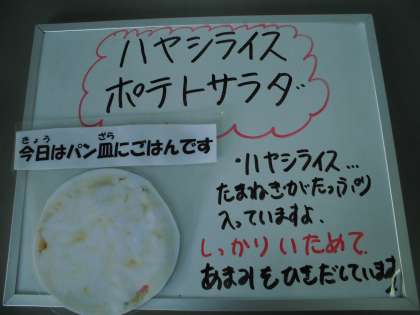 ハヤシライス
ポテトサラダ
きょう ざら
今日はパン皿にごはんです
・ハヤシライス…
たまねぎがたっぷり
入っていますよ、
しっかりいためて
あまみをひきだしています。